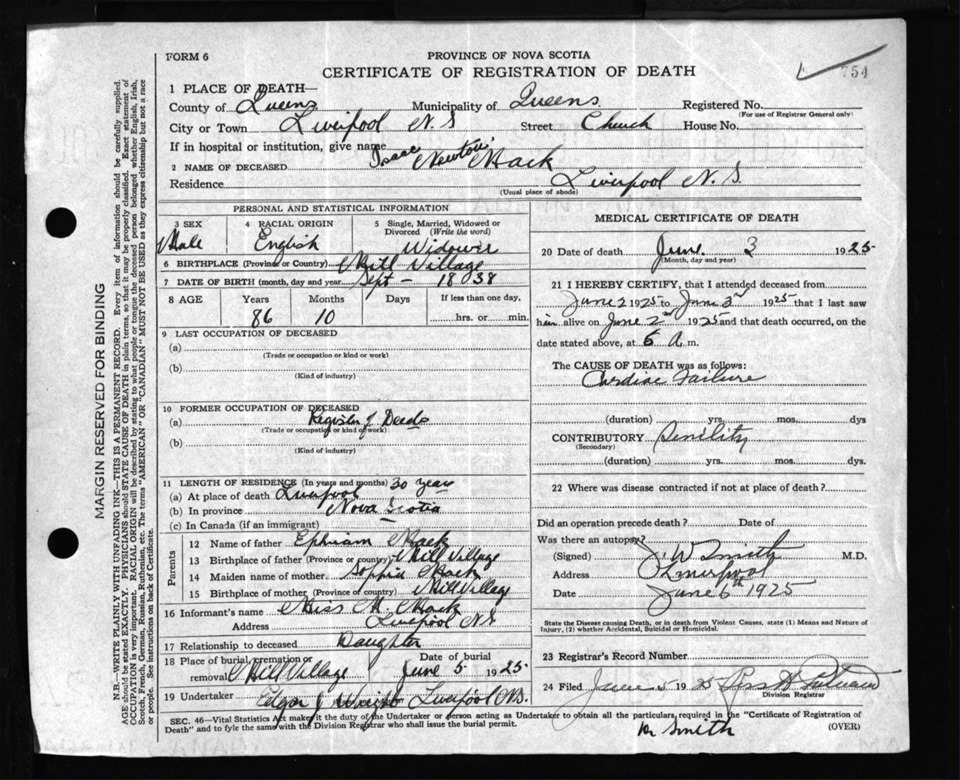 FORM 6
PROVINCE OF NOVA SCOTIA
CERTIFICATE OF REGISTRATION OF DEATH
754
1 PLACE OF DEATH—
County of Queens Municipality of Queens Registered No.
(For use of Registrar General only)
City or Town Liverpool N.S Street Church House No.
If in hospital or institution, give name
2 NAME OF DECEASED Isaac Newton Mack
Residence Liverpool N.S.
(Usual place of abode)
MARGIN RESERVED FOR BINDING
N.B.—WRITE PLAINLY WITH UNFADING INK—THIS IS A PERMANENT RECORD. Every item of information should be carefully supplied.
AGE should be stated EXACTLY. PHYSICIANS should STATE CAUSE OF DEATH in plain terms, so that it may be properly classified. Exact statement of
OCCUPATION is very important. RACIAL ORIGIN will be described by stating to what people or tongue the deceased person belonged whether English, Irish,
Scotch, French, German, Russian, Ruthenian, etc. The terms "AMERICAN" OR "CANADIAN" MUST NOT BE USED as they express citizenship but not a race
or people. See instructions on back of Certificate.
PERSONAL AND STATISTICAL INFORMATION
3 SEX
Male
4 RACIAL ORIGIN
English
5 Single, Married, Widowed or Divorced (Write the word)
Widower
6 BIRTHPLACE (Province or Country) Mill Village
7 DATE OF BIRTH (month, day and year) Sept – 1838
8 AGE Years Months Days If less than one day,
86 10 hrs. or min.
9 LAST OCCUPATION OF DECEASED
(a)
(Trade or occupation or kind or work)
(b)
(Kind of industry)
10 FORMER OCCUPATION OF DECEASED
(a) Register of Deeds
(Trade or occupation or kind of work)
(b)
(Kind of industry)
11 LENGTH OF RESIDENCE (In years and months) 30 years
(a) At place of death Liverpool
(b) In province Nova Scotia
(c) In Canada (if an immigrant)
Parents
12 Name of father Ephriam Mack
13 Birthplace of father (Province or country) Mill Village
14 Maiden name of mother Sophia Mack
15 Birthplace of mother (Province or country) Mill Village
16 Informant's name Miss M. Mack
Address Liverpool N.S
17 Relationship to deceased Daughter
18 Place of burial, cremation or removal Mill Village Date of burial June 5 1925
19 Undertaker Edgar J Wright Liverpool N.S.
MEDICAL CERTIFICATE OF DEATH
20 Date of death June 3 1925
(Month, day and year)
21 I HEREBY CERTIFY, that I attended deceased from
June 2 1925 to June 3rd 1925 that I last saw
him alive on June 2nd 1925 and that death occurred, on the
date stated above, at 6 A.m.
The CAUSE OF DEATH was as follows:
Cardiac Failure
(duration) yrs. mos. dys.
CONTRIBUTORY Senility
(Secondary)
(duration) yrs. mos. dys.
22 Where was disease contracted if not at place of death?
Did an operation precede death? Date of
Was there an autopsy?
(Signed) J. W Smith M.D.
Address Liverpool
Date June 6th 1925
State the Disease causing Death, or in death from Violent Causes, state (1) Means and Nature of
Injury, (2) whether Accidental, Suicidal or Homicidal.
23 Registrar's Record Number
24 Filed June 5 1925
Division Registrar
SEC. 46—Vital Statistics Act makes it the duty of the Undertaker or person acting as Undertaker to obtain all the particulars required in the "Certificate of Registration of
Death" and to fyle the same with the Division Registrar who shall issue the burial permit.
(OVER)
Dr Smith